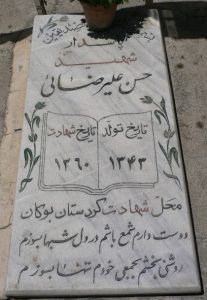 پاسدار
شهید
حسن علیرضائی
تاریخ تولد تاریخ شهادت
۱۳۴۳ ۱۳۶۰
محل شهادت کردستان بوکان
دوست دارم شمع باشم در دل شبها بسوزم
روشنی بخشم بجمعی خودم تنها بسوزم